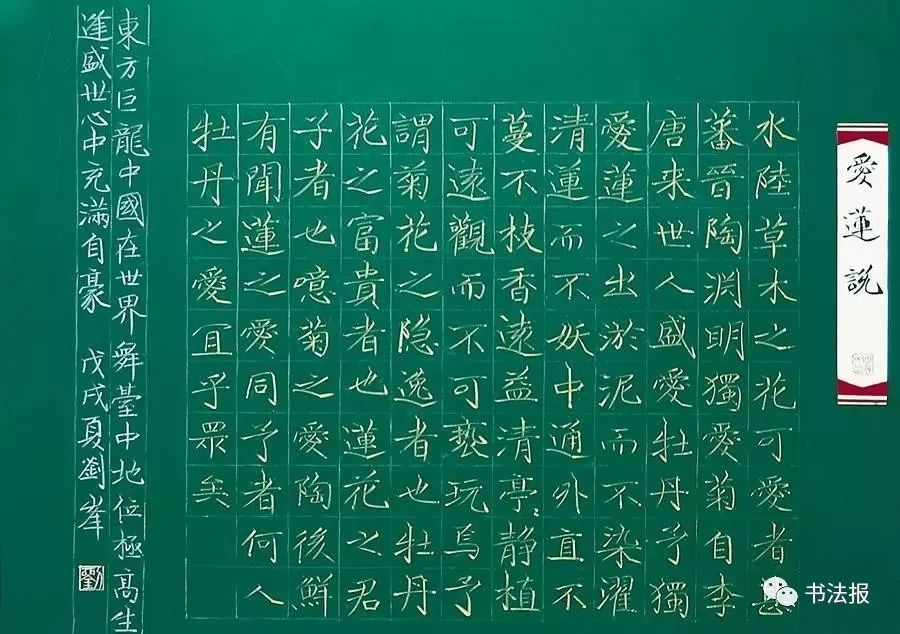 愛蓮説
水陸草木之花可愛者甚
蕃晉陶渊明獨愛菊自李
唐来世人盛愛牡丹予獨
愛蓮之出淤泥而不染濯
清蓮而不妖中通外直不
蔓不枝香遠益清亭〻静植
可遠觀而不可褻玩焉予
謂菊花之隐逸者也牡丹
花之富貴者也蓮花之君
子者也噫菊之愛陶後鮮
有聞蓮之愛同予者何人
牡丹之愛宜乎眾矣
東方巨龍中國在世界舞臺中地位極高生
逢盛世心中充滿自豪 戊戌夏劉峯
劉
书法报